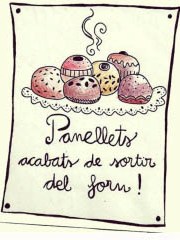 Panellets
acabats de sortir
del forn!